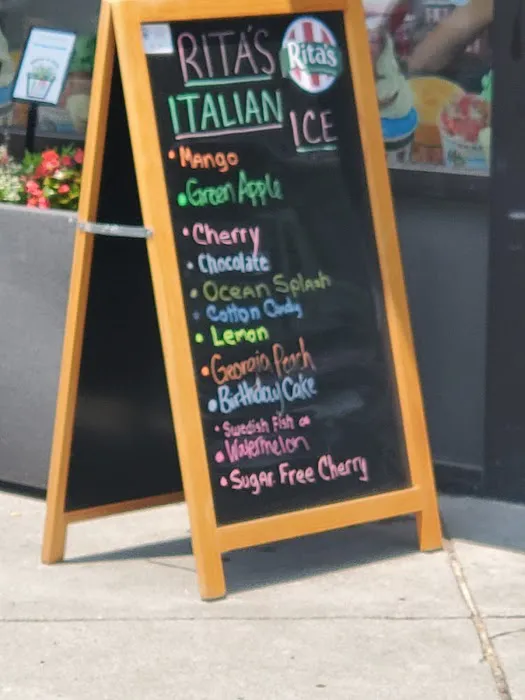 RITA'S
Rita's
ITALIAN
ICE
• Mango
• Green Apple
• Cherry
• Chocolate
• Ocean Splash
• Cotton Candy
• Lemon
• Georgia Peach
• Birthday Cake
• Swedish Fish
• Watermelon
• Sugar Free Cherry